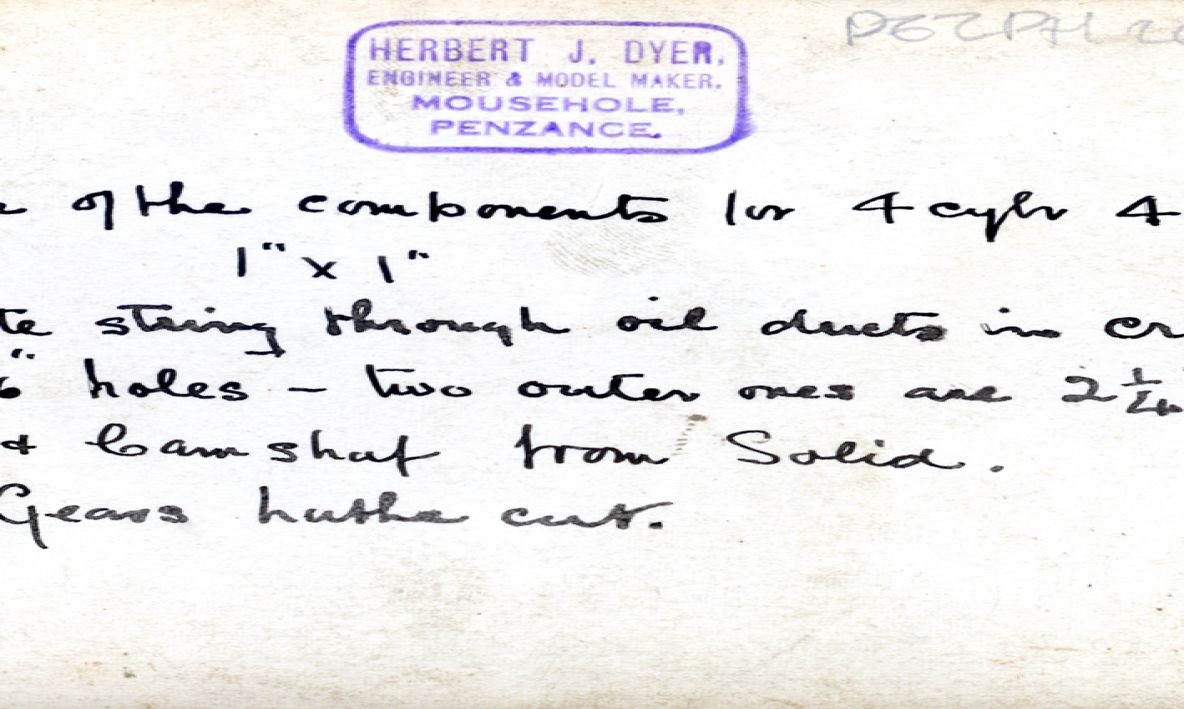 PEZPH
HERBERT J. DYER.
ENGINEER & MODEL MAKER.
MOUSEHOLE,
PENZANCE.
of the components for 4 cylr 4
1" x 1"
string through oil ducts in cr
6" holes – two outer ones are 2 1/4
+ Camshaf from Solid.
Gears cut.